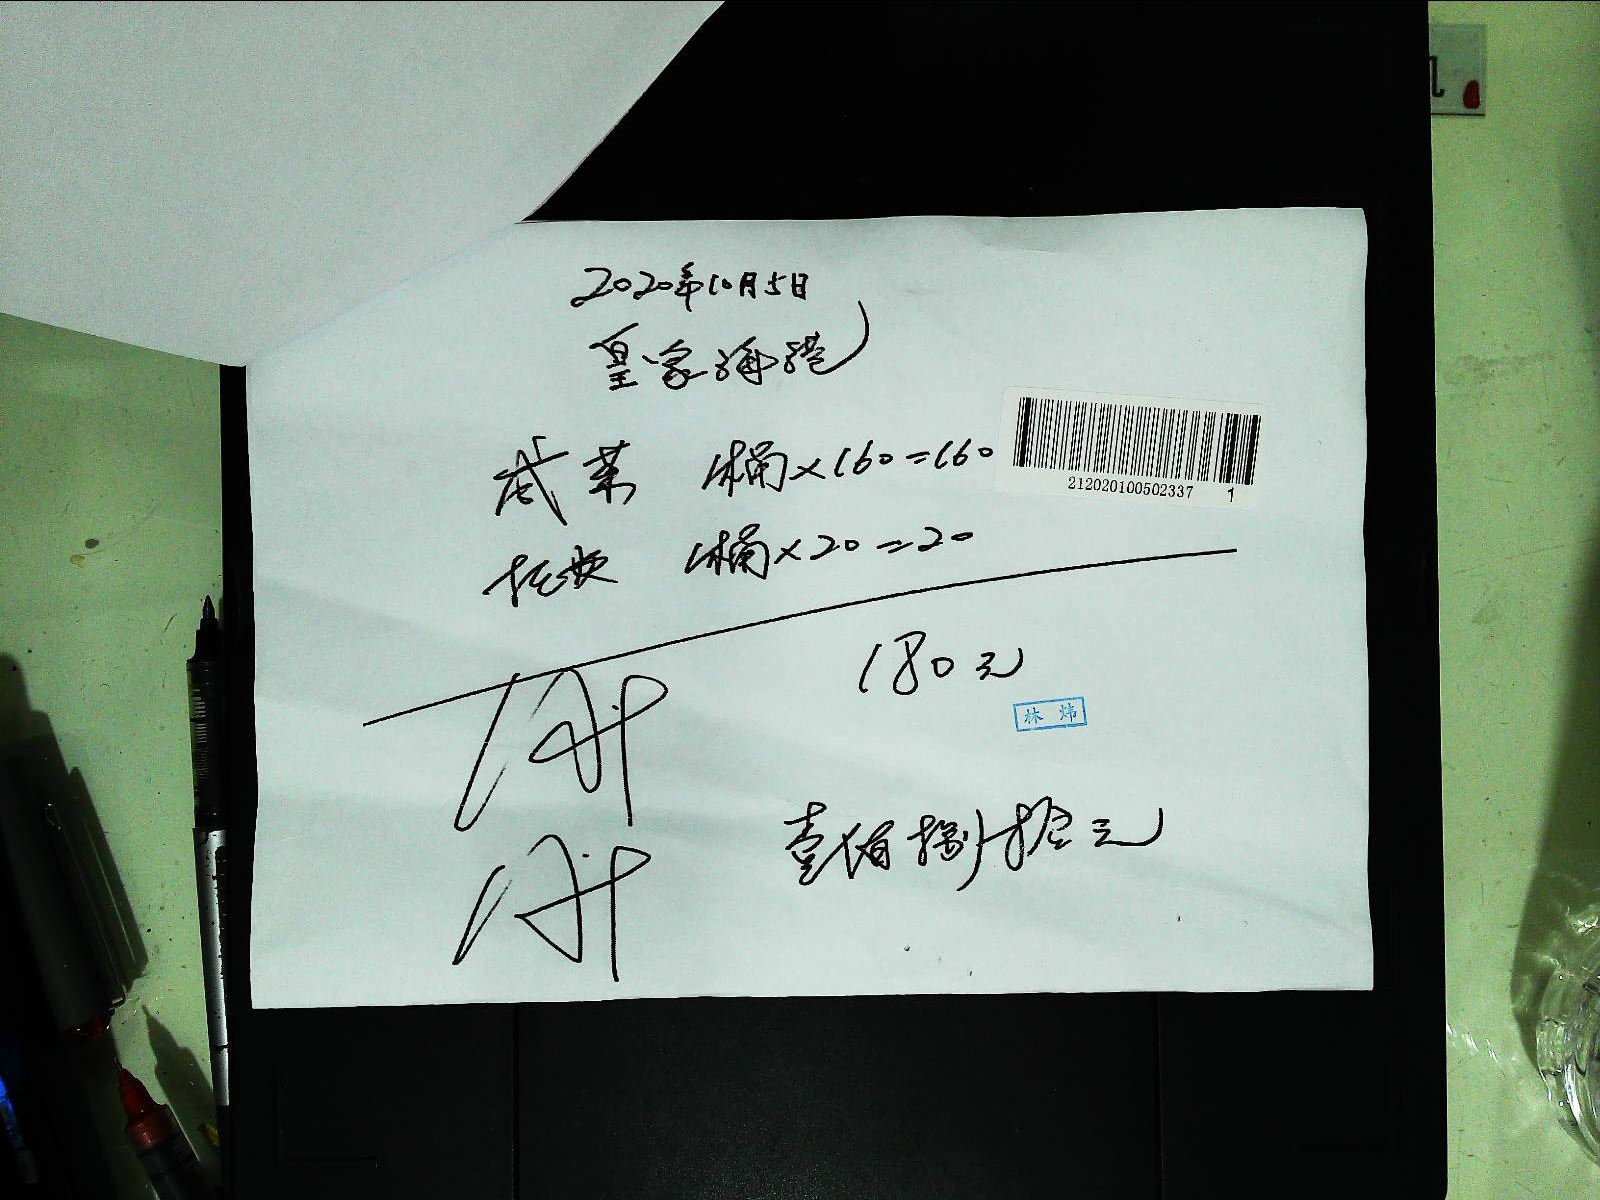 2020年10月5日
皇家海港
咸菜 1桶×160=160
212020100502337 1
1桶×20=20
180元
林炜
壹佰捌拾元